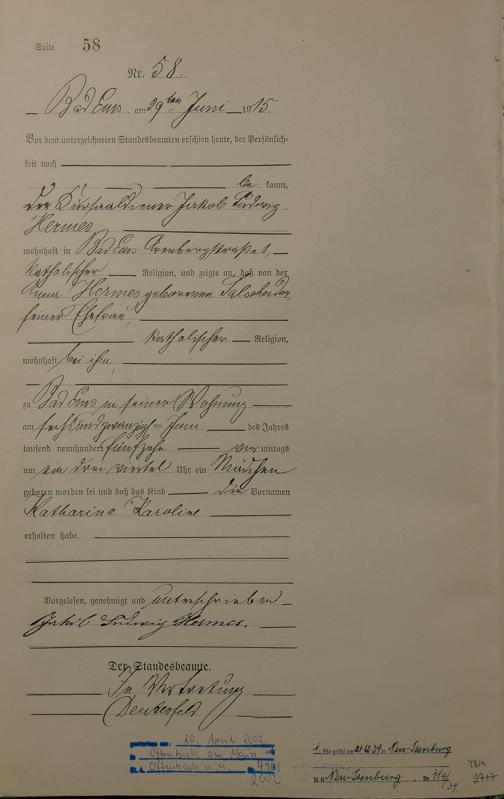 Seite 58
Nr. 58.
Bad Ems am 29ten Juni 1915.
Vor dem unterzeichneten Standesbeamten erschien heute, der Persönlich-
keit nach
be kannt,
der Kursaaldiener Jakob Ludwig
Hermes,
wohnhaft in Bad Ems
katholischer Religion, und zeigte an, daß von der
Anna Hermes geborenen
seiner Ehefrau,
katholischer Religion,
wohnhaft bei ihm,
zu Bad Ems in seiner Wohnung
am sechsundzwanzigsten Juni des Jahres
tausend neunhundert fünfzehn vor mittags
um ein drei viertel Uhr ein Mädchen
geboren worden sei und daß das Kind die Vornamen
Katharine Karoline
erhalten habe.
Vorgelesen, genehmigt und unterschrieben
Jakob Ludwig Hermes.
Der Standesbeamte.
In Vertretung
gestorben am: 20. April 2002
Offenbach am Main
St. A. Offenbach a. M. No
1. Ehe geschl. am 21.12.39 in Neu-Isenburg
St. A. Neu-Isenburg No 714/39